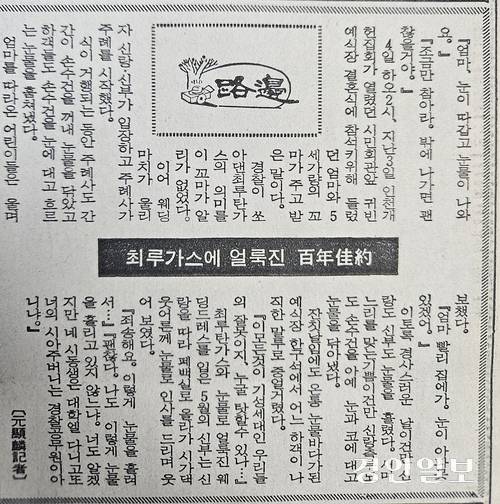 路邊
최루가스에 얼룩진 百年佳約
『엄마, 눈이 따갑고 눈물이 나와
요.』
『조금만 참아라. 밖에 나가면 괜
찮을거야.』
4일 하오2시, 지난3일 인천개
헌집회가 열렸던 시민회관앞 귀빈
예식장 결혼식에 참석키위해 들렀
던 엄마와 5
세가량의 꼬
마가 주고받
은 말이다.
경찰이 쏘
아댄최루탄가
스의 의미를
이 꼬마가 알
리가 없었다.
이어 웨딩
마치가 울리
자 신랑·신부가 입장하고 주례사가
주례를 시작했다.
식이 거행되는 동안 주례사도 간
간이 손수건을 꺼내 눈물을 닦았고
하객들도 손수건을 눈에 대고 흐르
는 눈물을 훔쳐냈다.
엄마를 따라온 어린이들은 울며
보챘다.
『엄마 빨리 집에가. 눈이 아파 못
있겠어.』
이토록 경사스러운 날이건만 신
랑도 신부도 눈물을 흘렸다. 새며
느리를 맞는기쁨이건만 신랑측
도 손수건을 아예 눈과 코에 대고
눈물을 닦아냈다.
잔칫날임에도 온통 눈물바다가된
예식장 한구석에서 어느 하객이 나
직한 말투로 중얼거렸다.
『이모든것이 기성세대인 우리들
의 잘못이지, 누굴 탓할수 있나…』
최루탄가스와 눈물로 얼룩진 웨
딩드레스를 입은 5월의 신부는 신
랑을 따라 폐백실로 올라가 시가댁
웃어른께 눈물로 인사를 드리며 웃
어 보였다.
『죄송해요. 이렇게 눈물을 흘려
서…』『괜찮다. 나도 이렇게 눈물
을 흘리고 있지 않느냐. 너도 알겠
지만 네 시동생은 대학엘 다니고 또
너의 시아주버니는 경찰공무원이아
니냐.』
〔元顯麟記者〕
경인일보